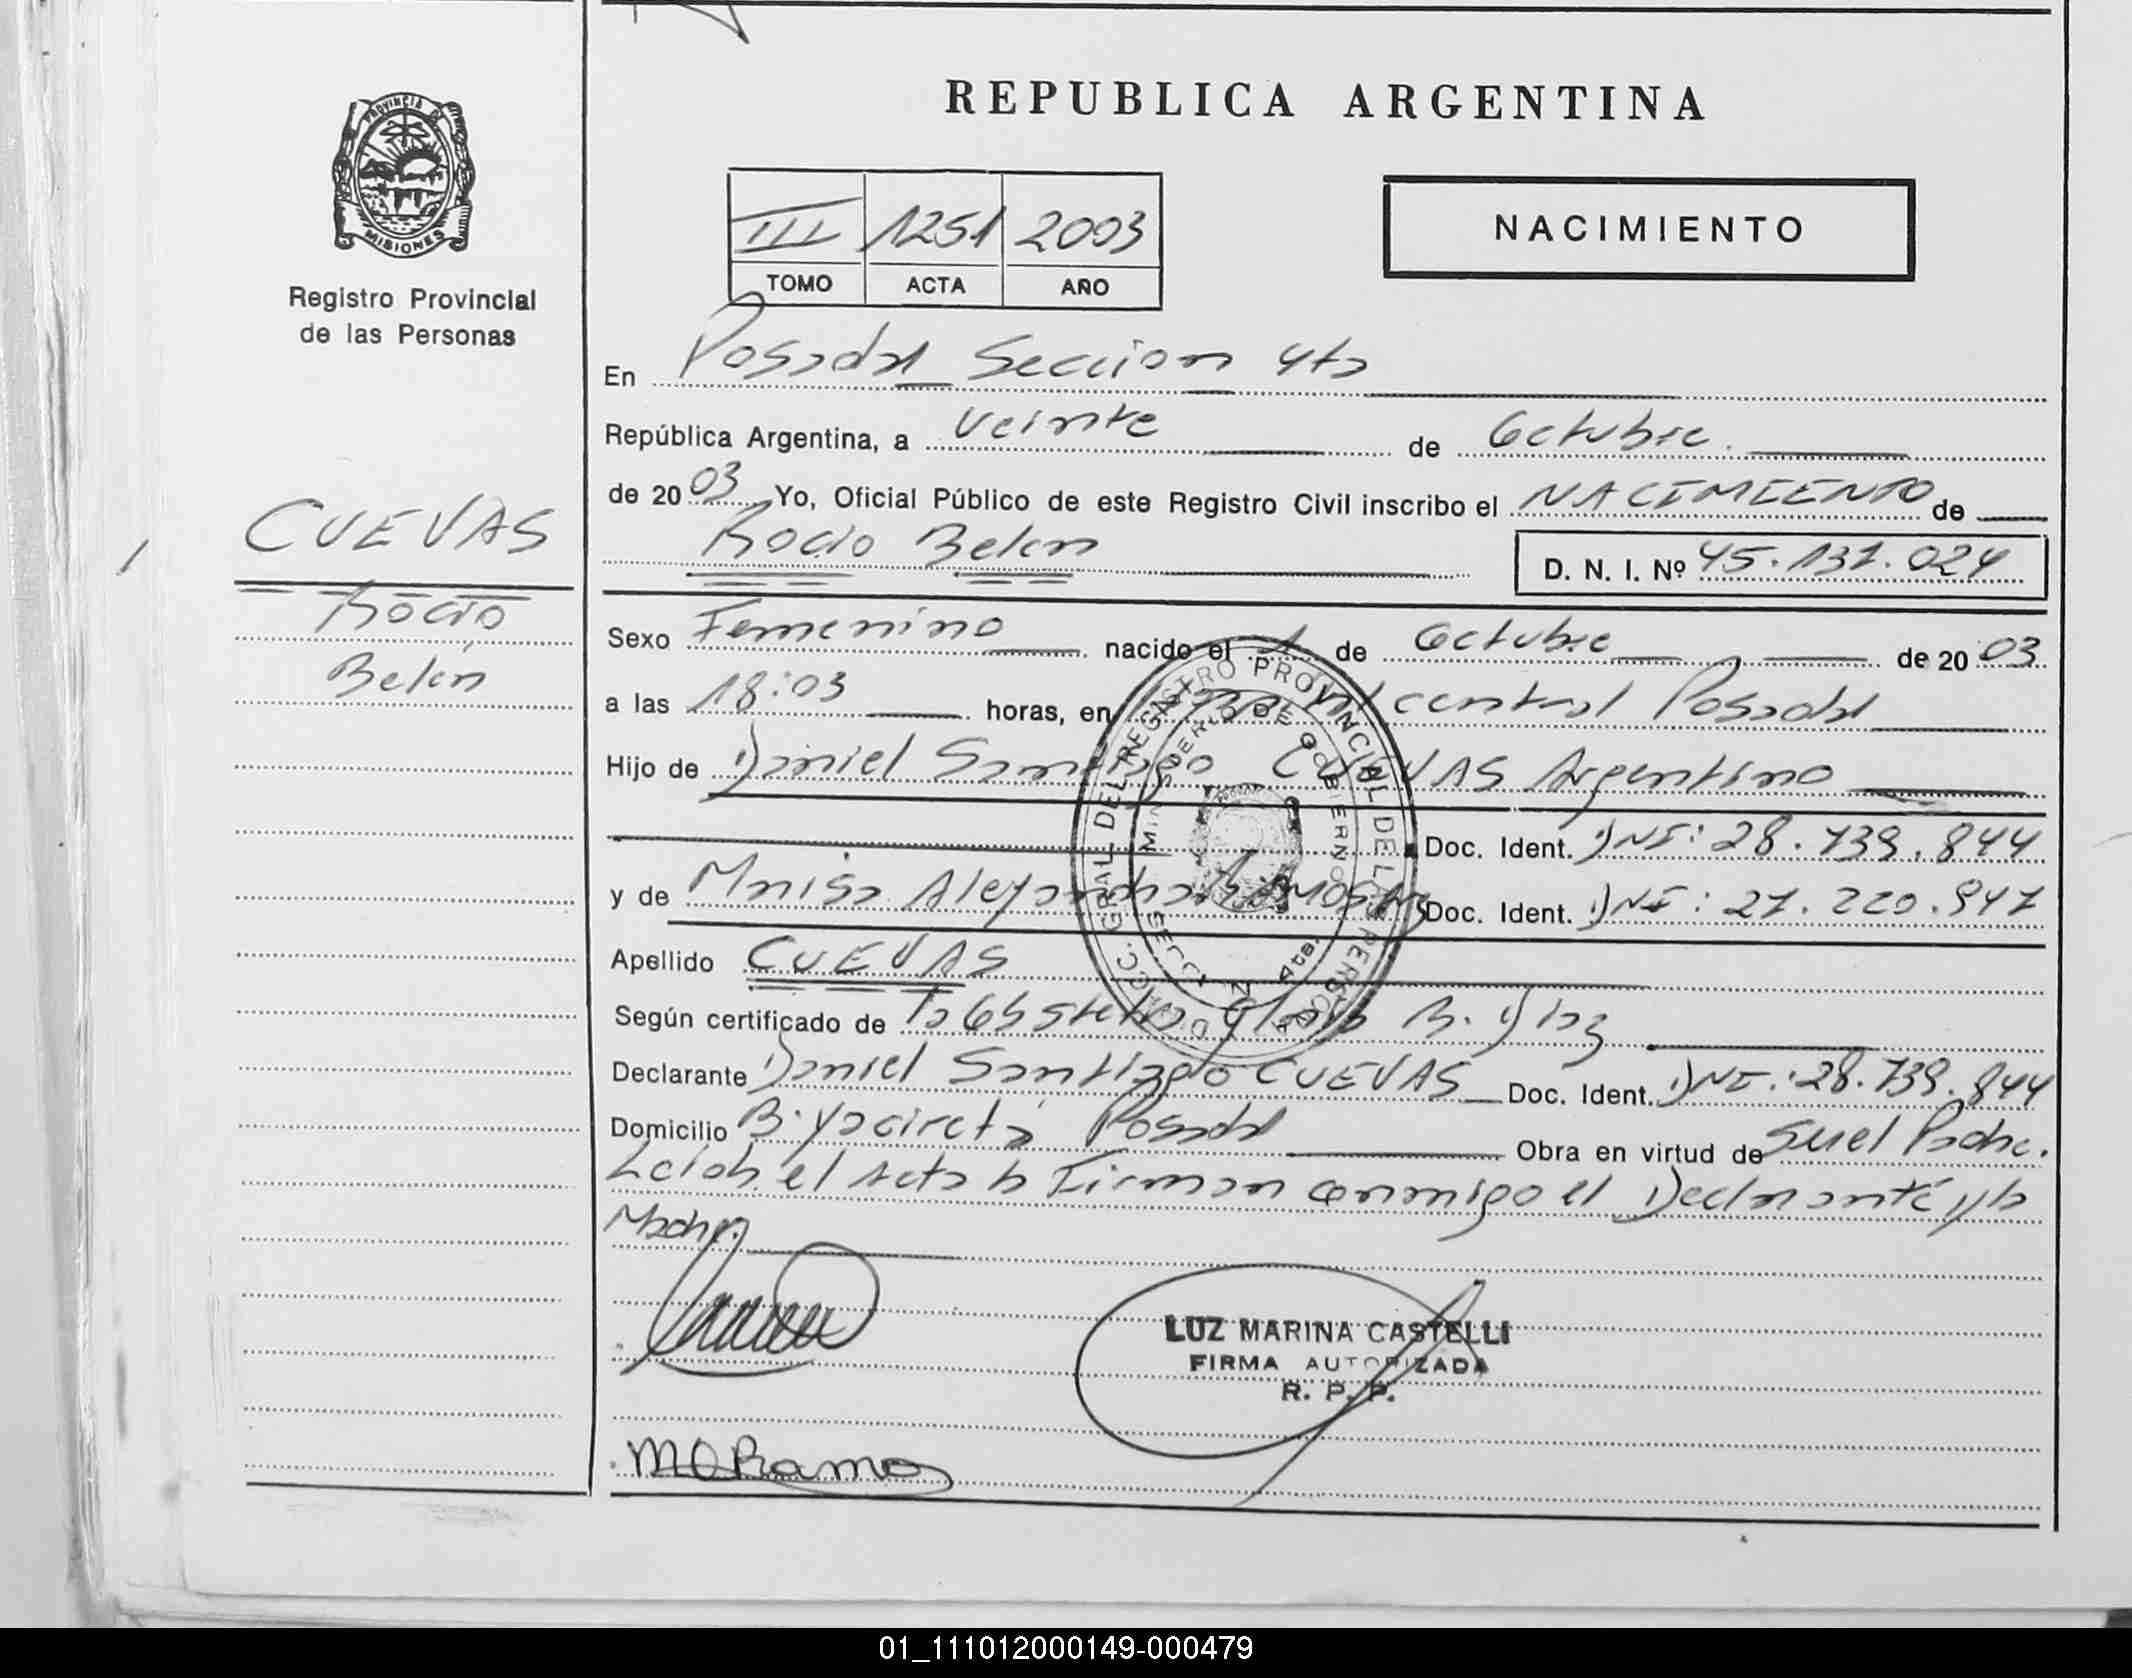 REPUBLICA ARGENTINA
PROVINCIA DE
MISIONES
Registro Provincial
de las Personas
III 1251 2003
TOMO ACTA AÑO
NACIMIENTO
En Posadas Seccion 4ta
República Argentina, a veinte de Octubre
de 2003 Yo, Oficial Público de este Registro Civil inscribo el NACIMIENTO de
Rocio Belen D. N. I. Nº 45.137.024
CUEVAS
Rocio
Belén
Sexo Femenino nacido el 1 de Octubre de 2003
a las 18:03 horas, en central Posadas
Hijo de Daniel Santiago CUEVAS Argentino
Doc. Ident. DNI: 28.739.844
y de Marisa Alejandra Ramos Doc. Ident. DNI: 27.220.947
Apellido CUEVAS
Según certificado de la Obstetra Gloria B. Diaz
Declarante Daniel Santiago CUEVAS Doc. Ident. DNI: 28.739.844
Domicilio B. Yacireta Posadas Obra en virtud de Ser el Padre.
Leida el Acta la Firman conmigo el Declarante y la
Madre.
DIRECC. GRAL. DEL REGISTRO PROVINCIAL DE LAS PERSONAS
MINISTERIO DE GOBIERNO
4ta.
LUZ MARINA CASTELLI
FIRMA AUTORIZADA
R. P. P.
01_111012000149-000479